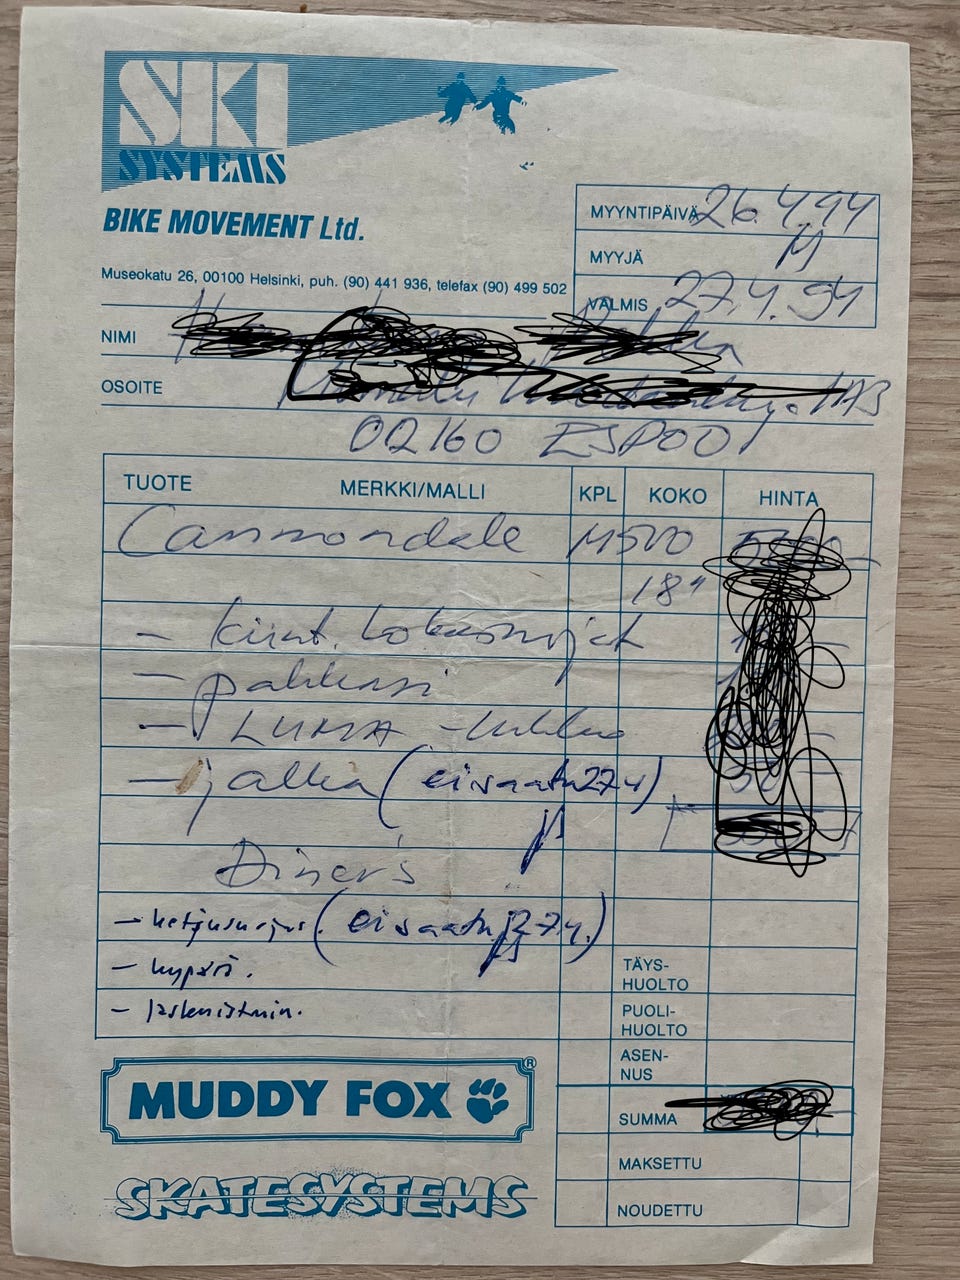 SKI
SYSTEMS
BIKE MOVEMENT Ltd.
Museokatu 26, 00100 Helsinki, puh. (90) 441 936, telefax (90) 499 502
MYYNTIPÄIVÄ 26.4.94
MYYJÄ
VALMIS 27.4.94
NIMI
OSOITE
02160 ESPOO
TUOTE MERKKI/MALLI KPL KOKO HINTA
Cannondale M500
18"
- kiint. lokasuojat
- pakkasi
- LUMA - lukko
- jalka (ei saatu 27.4)
Diner's
- ketjusuojus. (ei saatu 27.4.)
- kypärä.
- lastenistuin.
TÄYS-
HUOLTO
PUOLI-
HUOLTO
ASEN-
NUS
SUMMA
MAKSETTU
NOUDETTU
MUDDY FOX ®
SKATESYSTEMS